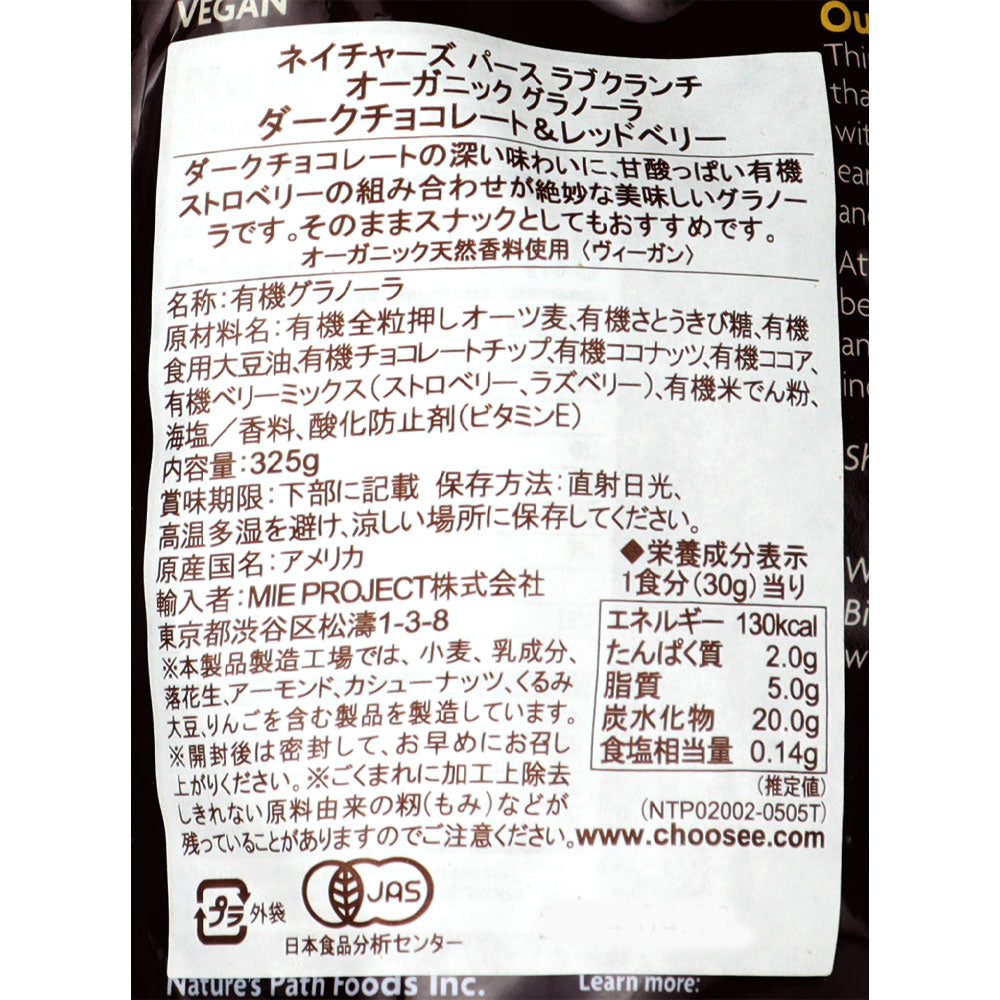 VEGAN
ネイチャーズ パース ラブクランチ
オーガニック グラノーラ
ダークチョコレート&レッドベリー
ダークチョコレートの深い味わいに、甘酸っぱい有機
ストロベリーの組み合わせが絶妙な美味しいグラノー
ラです。そのままスナックとしてもおすすめです。
オーガニック天然香料使用〈ヴィーガン〉
名称：有機グラノーラ
原材料名：有機全粒押しオーツ麦、有機さとうきび糖、有機
食用大豆油、有機チョコレートチップ、有機ココナッツ、有機ココア、
有機ベリーミックス（ストロベリー、ラズベリー）、有機米でん粉、
海塩／香料、酸化防止剤（ビタミンE）
内容量：325g
賞味期限：下部に記載 保存方法：直射日光、
高温多湿を避け、涼しい場所に保存してください。
原産国名：アメリカ
輸入者：MIE PROJECT株式会社
東京都渋谷区松濤1-3-8
※本製品製造工場では、小麦、乳成分、
落花生、アーモンド、カシューナッツ、くるみ
大豆、りんごを含む製品を製造しています。
※開封後は密封して、お早めにお召し
上がりください。※ごくまれに加工上除去
しきれない原料由来の籾（もみ）などが
残っていることがありますのでご注意ください。
◆栄養成分表示
1食分（30g）当り
エネルギー 130kcal
たんぱく質 2.0g
脂質 5.0g
炭水化物 20.0g
食塩相当量 0.14g
（推定値）
（NTP02002-0505T）
www.choosee.com
プラ 外袋
JAS
日本食品分析センター
Nature's Path Foods Inc.
Learn more:
Ou
Thi
tha
wit
ear
an
At
be
an
in
Sh
W
Bi
w